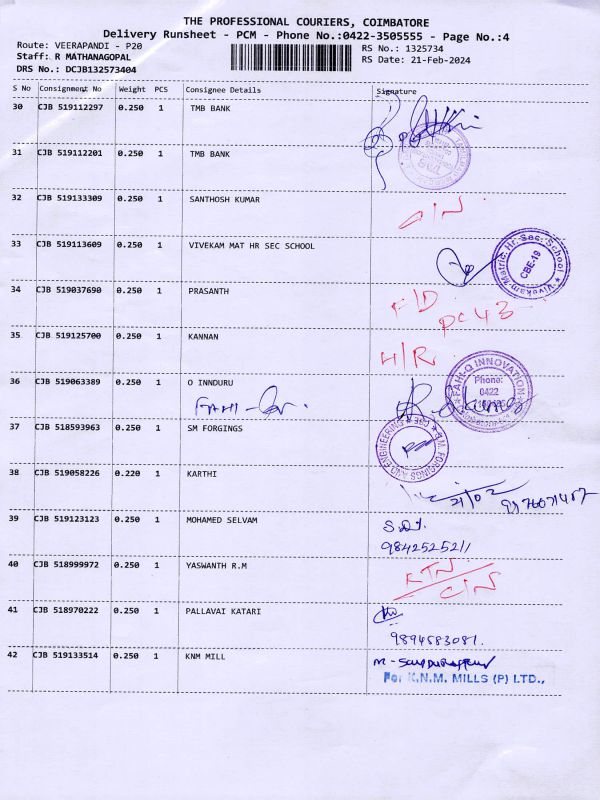 THE PROFESSIONAL COURIERS, COIMBATORE
Delivery Runsheet - PCM - Phone No.:0422-3505555 - Page No.:4
Route: VEERAPANDI - P20 RS No.: 1325734
Staff: R MATHANAGOPAL RS Date: 21-Feb-2024
DRS No.: DCJB132573404
S No Consignment No Weight PCS Consignee Details Signature
30 CJB 519112297 0.250 1 TMB BANK
31 CJB 519112201 0.250 1 TMB BANK
32 CJB 519133309 0.250 1 SANTHOSH KUMAR
33 CJB 519113609 0.250 1 VIVEKAM MAT HR SEC SCHOOL
Vivekam Matric. Hr. Sec. School
CBE-19
34 CJB 519037690 0.250 1 PRASANTH
F/D
PC43
35 CJB 519125700 0.250 1 KANNAN
H/R
36 CJB 519063389 0.250 1 O INNDURU
FAHI-Q INNOVATION
Phone:
0422
37 CJB 518593963 0.250 1 SM FORGINGS
S.M. FORGINGS AND ENGINEERING
38 CJB 519058226 0.220 1 KARTHI
21/02
39 CJB 519123123 0.250 1 MOHAMED SELVAM
9842525211
40 CJB 518999972 0.250 1 YASWANTH R.M
RTN
C/N
41 CJB 518970222 0.250 1 PALLAVAI KATARI
9894583081.
42 CJB 519133514 0.250 1 KNM MILL
For K.N.M. MILLS (P) LTD.,